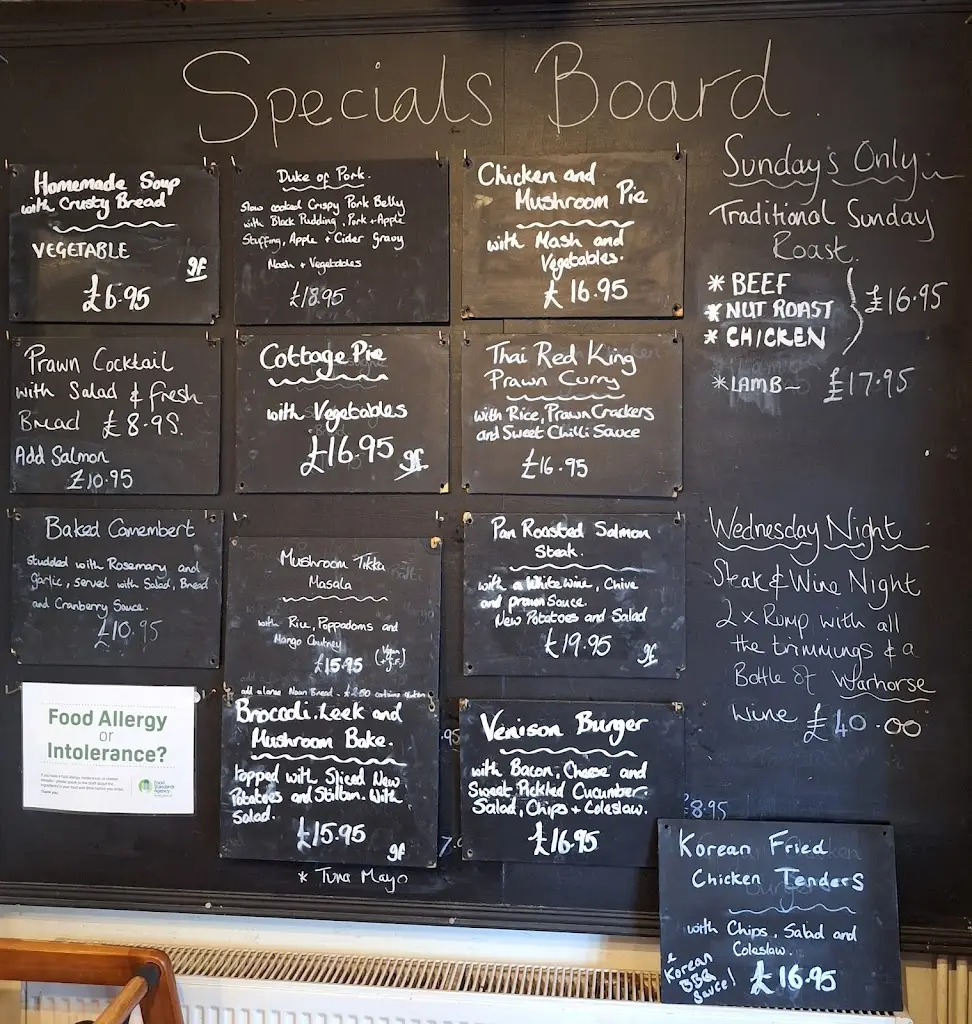 Specials Board.
Homemade Soup
with Crusty Bread
VEGETABLE
gf
£6.95
Prawn Cocktail
with Salad & fresh
Bread £8.95.
Add Salmon
£10.95
Baked Camembert
Studded with Rosemary and
garlic, served with Salad, Bread
and Cranberry Sauce.
£10.95
Food Allergy
or
Intolerance?
Food
Standards
Agency
Duke of Pork.
Slow cooked Crispy Pork Belly
with Black Pudding, Pork + Apple
Stuffing, Apple + Cider Gravy
Mash + Vegetables
£18.95
Cottage Pie
with Vegetables
£16.95
gf
Mushroom Tikka
Masala
with Rice, Poppadoms and
Mango Chutney
£15.95 (Vegan + G.F.)
add a large Naan Bread - £2.50 contains gluten
Brocooli, Leek and
Mushroom Bake.
topped with Sliced New
Potatoes and Stilton. With
Salad.
£15.95
gf
* Tuna Mayo
Chicken and
Mushroom Pie
with Mash and
Vegetables.
£16.95
Thai Red King
Prawn Curry
with Rice, Prawn Crackers
and Sweet Chilli Sauce
£16.95
Pan Roasted Salmon
Steak.
with a White wine, Chive
and prawn Sauce.
New Potatoes and Salad
£19.95
gf
.95
Venison Burger
with Bacon, Cheese and
Sweet Pickled Cucumber.
Salad, Chips + Coleslaw.
£16.95
Sunday's Only
Traditional Sunday
Roast.
* BEEF
* NUT ROAST £16.95
* CHICKEN
* LAMB - £17.95
Wednesday Night
Steak & Wine Night
2 x Rump with all
the trimmings & a
Bottle of Warhorse
Wine £40.00
8.95
Korean Fried
Chicken Tenders
with Chips, Salad and
Coleslaw.
& Korean
BBQ
Sauce!
£16.95